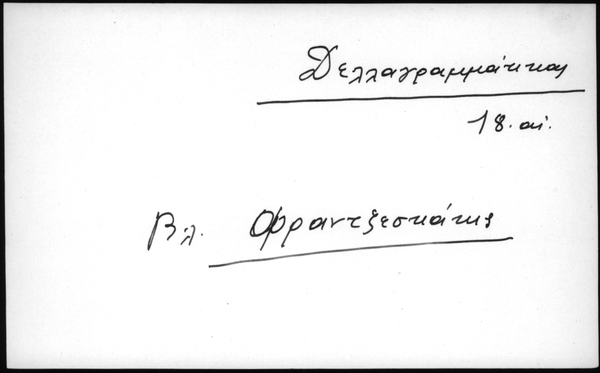 Δελλαγραμμάτικας
18. αι.
Βλ. Φραντζεσκάκης